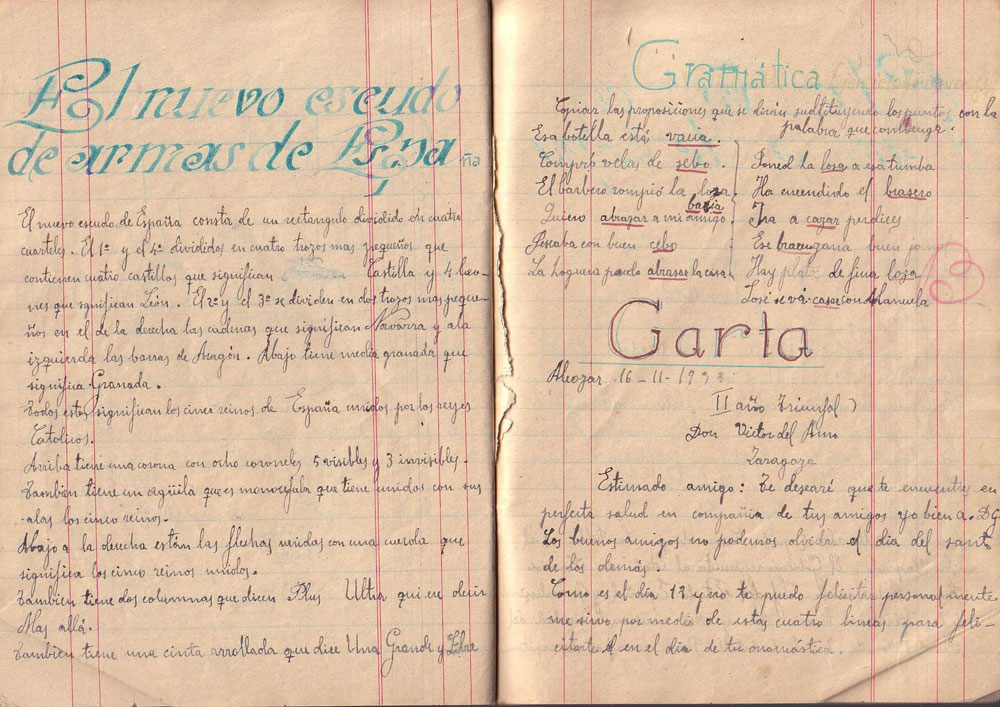 El nuevo escudo
de armas de Espa
ña
El nuevo escudo de España consta de un rectangulo dividido en cuatro
cuarteles. El 1º y el 4º divididos en cuatro trozos mas pequeños que
contienen cuatro castillos que significan Castilla y 4 leo-
nes que significan León. El 2º y el 3º se dividen en dos trozos mas peque-
ños en el de la derecha las cadenas que significan Navarra y a la
izquierda las barras de Aragón. Abajo tiene media granada que
significa Granada.
Todos estos significan los cinco reinos de España unidos por los reyes
Catolicos.
Arriba tiene una corona con ocho coroneles 5 visibles y 3 invisibles.
Tambien tiene un agüila que es monocefala que tiene unidos con sus
alas los cinco reinos.
Abajo a la derecha están las flechas unidas con una cuerda que
significa los cinco reinos unidos.
Tambien tiene dos columnas que dicen Plus Ultra quiere decir
Mas allá.
Tambien tiene una cinta arrollada que dice Una Grande y Libre
Gramática
Copiar las proposiciones que se dirán sustituyendo los puntos con la
palabra que convenga.
Esa botella está vacia.
Compró velas de sebo
El barbero rompió la loza
bacia
Quiero abrazar a mi amigo
Pescaba con buen cebo
La hoguera puede abrasar la casa
Poned la losa a esa tumba
Ha encendido el brasero
Ira a cazar perdices
Ese bracero gana buen
Hay platos de fina loza
José se vá casar con Manuela
Carta
Alcozar 16-11-1938
II año Triunfal)
Don Victor del Amo
Zaragoza
Estimado amigo: Te desearé que te encuentres en
perfecta salud en compañia de tus amigos yo bien a. D.G.
Los buenos amigos no podemos olvidar el dia del santo
de los demás.
Como es el dia 17 y no te puedo felicitar personalmente
me sirvo por medio de estas cuatro lineas para feli-
citarte en el dia de tu onomástica.